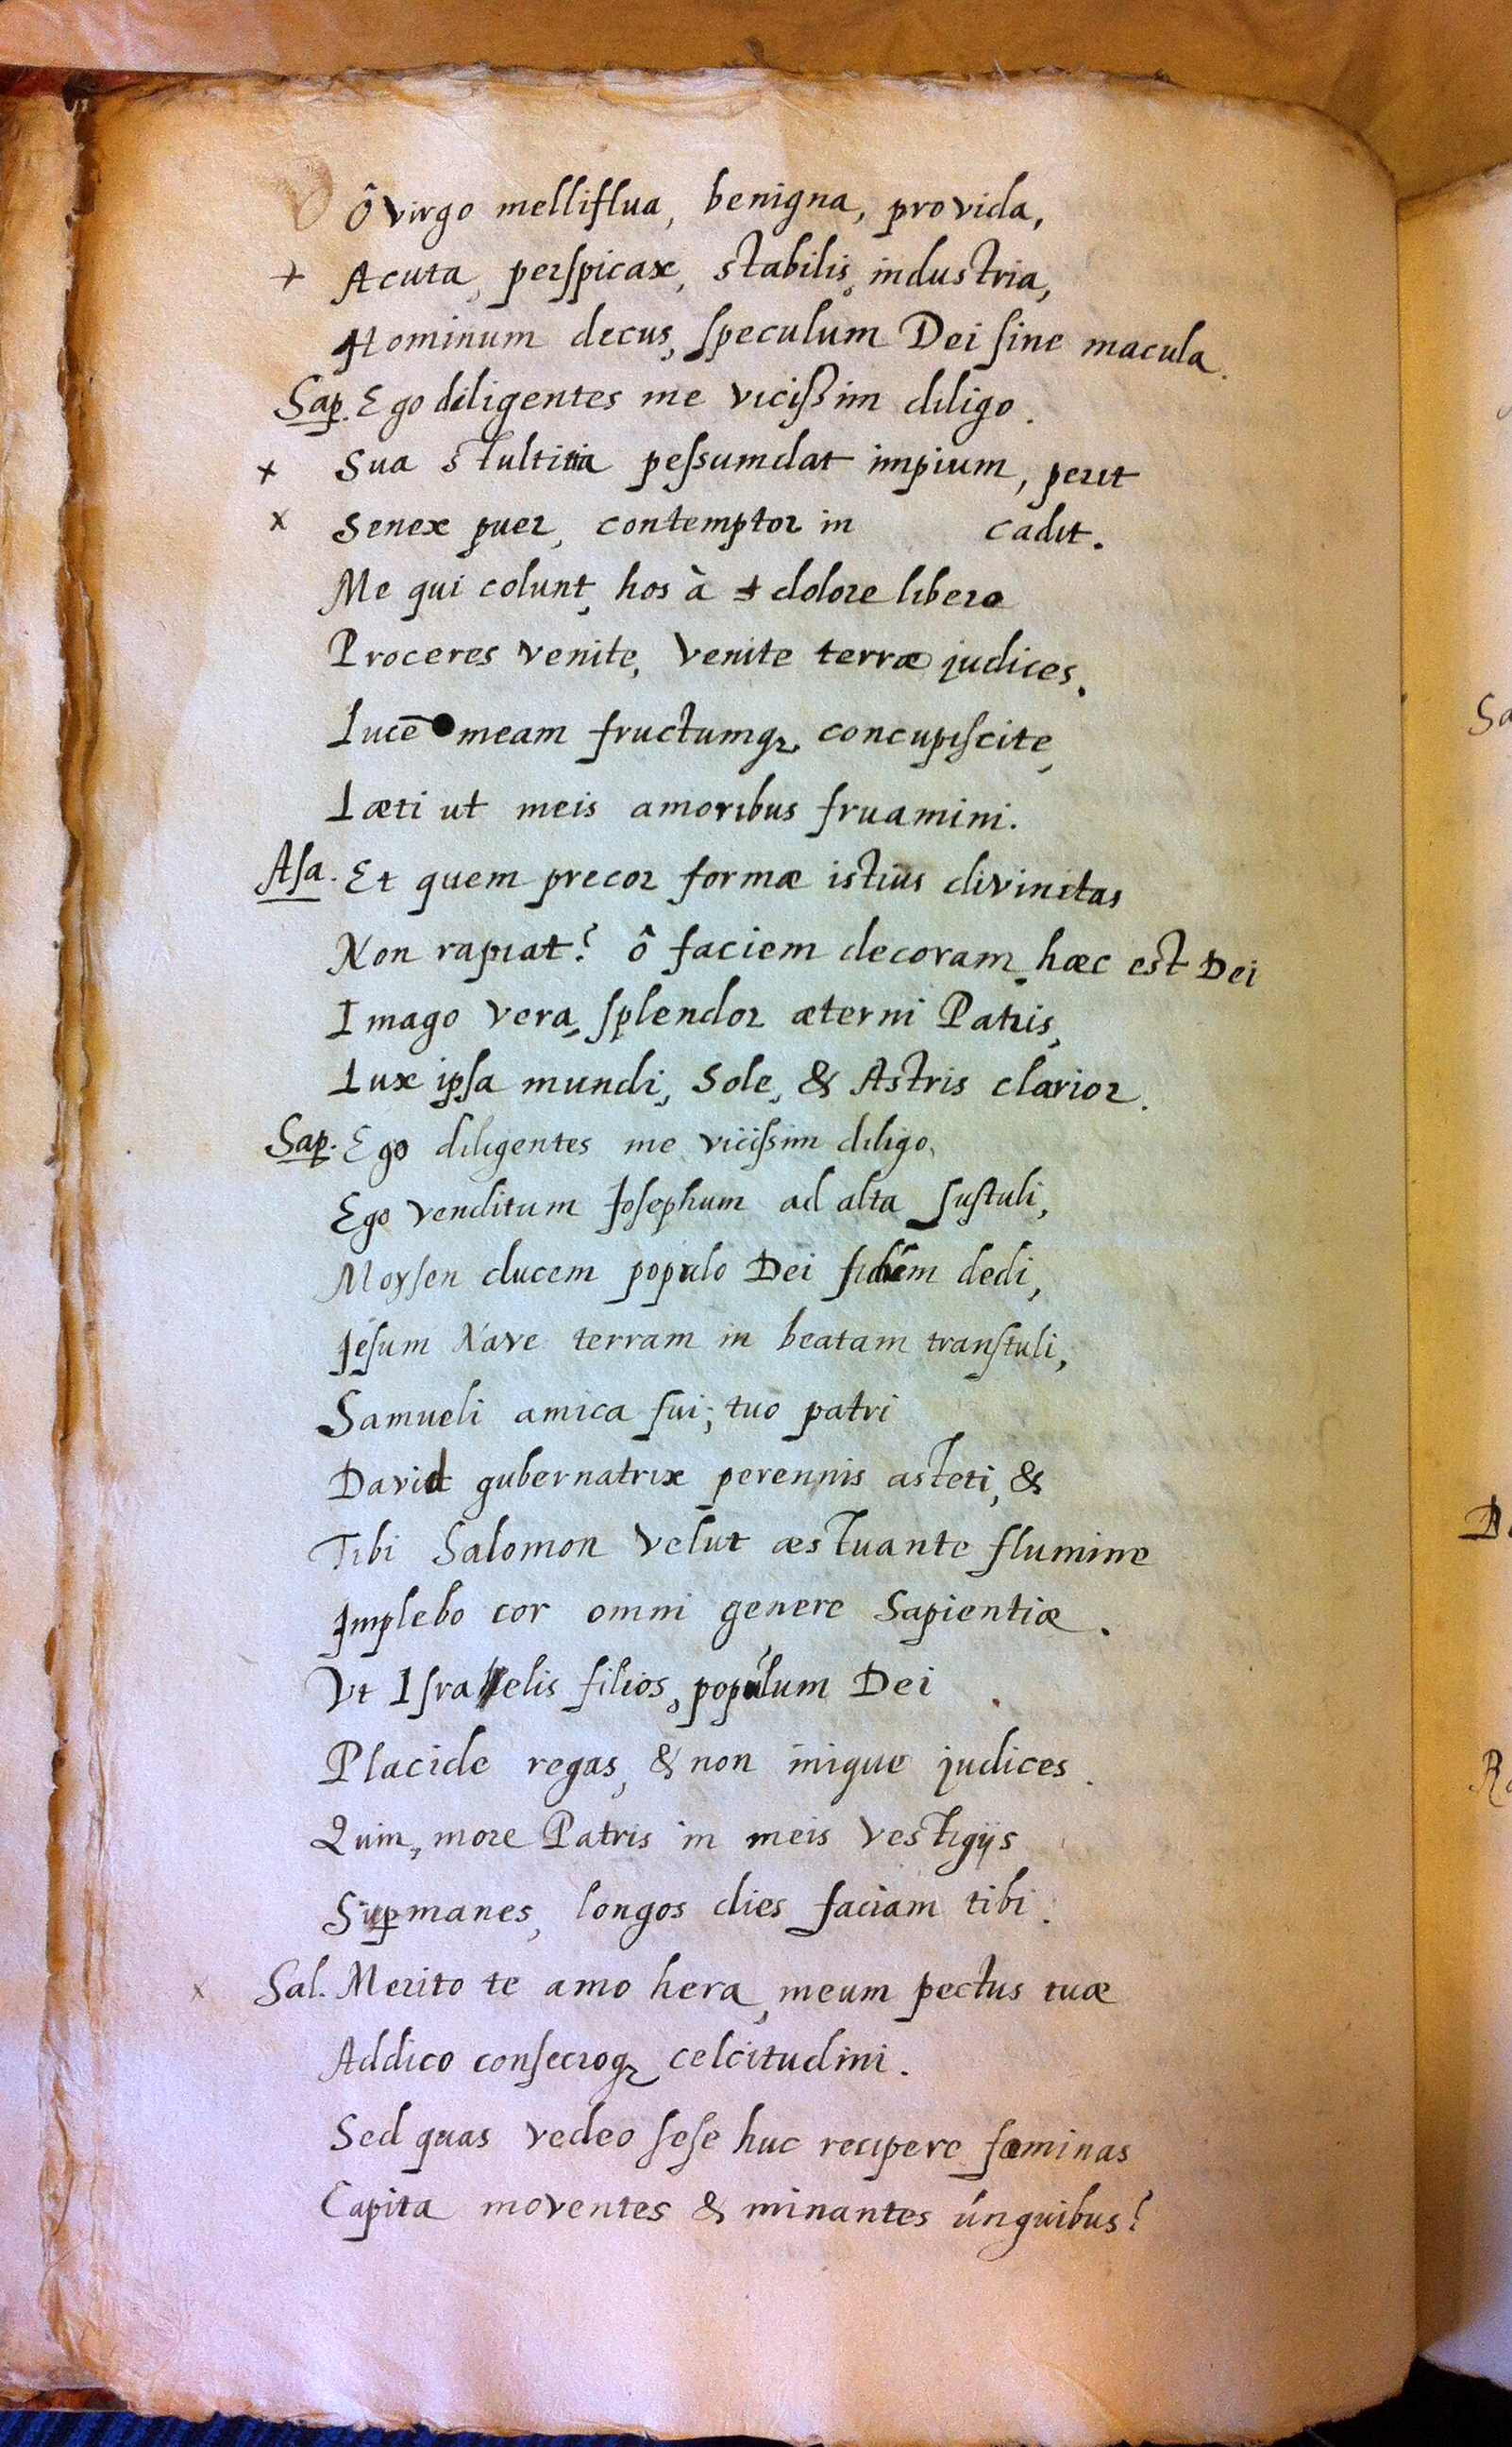 Ô virgo melliflua, benigna, provida,
+ Acuta, perſpicax, stabilis, industria,
Hominum decus, ſpeculum Dei ſine macula.
Sap. Ego diligentes me viciſsim diligo.
x Sua stultitia peſsumdat impium, perit
x Senex puer, contemptor in cadit.
Me qui colunt, hos à dolore libero
Proceres venite, venite terræ judices.
Lucē meam fructumq; concupiſcite,
Læti ut meis amoribus fruamini.
Aſa. Et quem precor formæ istius divinitas
Non rapiat? ô faciem decoram, hæc est Dei
Imago vera, ſplendor æterni Patris,
Lux ipſa mundi, Sole, & Astris clarior.
Sap. Ego diligentes me viciſsim diligo.
Ego venditum Joſephum ad alta ſuſtuli,
Moyſen ducem populo Dei dedi,
Jeſum Nave terram in beatam tranſtuli,
Samueli amica fui; tuo patri
David gubernatrix perennis asteti, &
Tibi Salomon velut æstuante flumine
Implebo cor omni genere Sapientiæ.
Vt Iſraelis filios, populum Dei
Placide regas, & non inique judices.
Quin, more Patris in meis vestigijs
Si ꝑmanes, longos dies faciam tibi.
x Sal. Merito te amo hera, meum pectus tuæ
Addico conſecroq; celcitudini.
Sed quas vedeo ſeſe huc recipere fœminas
Capita moventes & minantes únguibus?